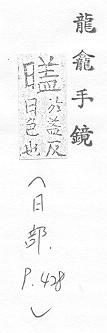 龍龕手鏡
𣉞於蓋反
日色也
(日部.
P.428
)